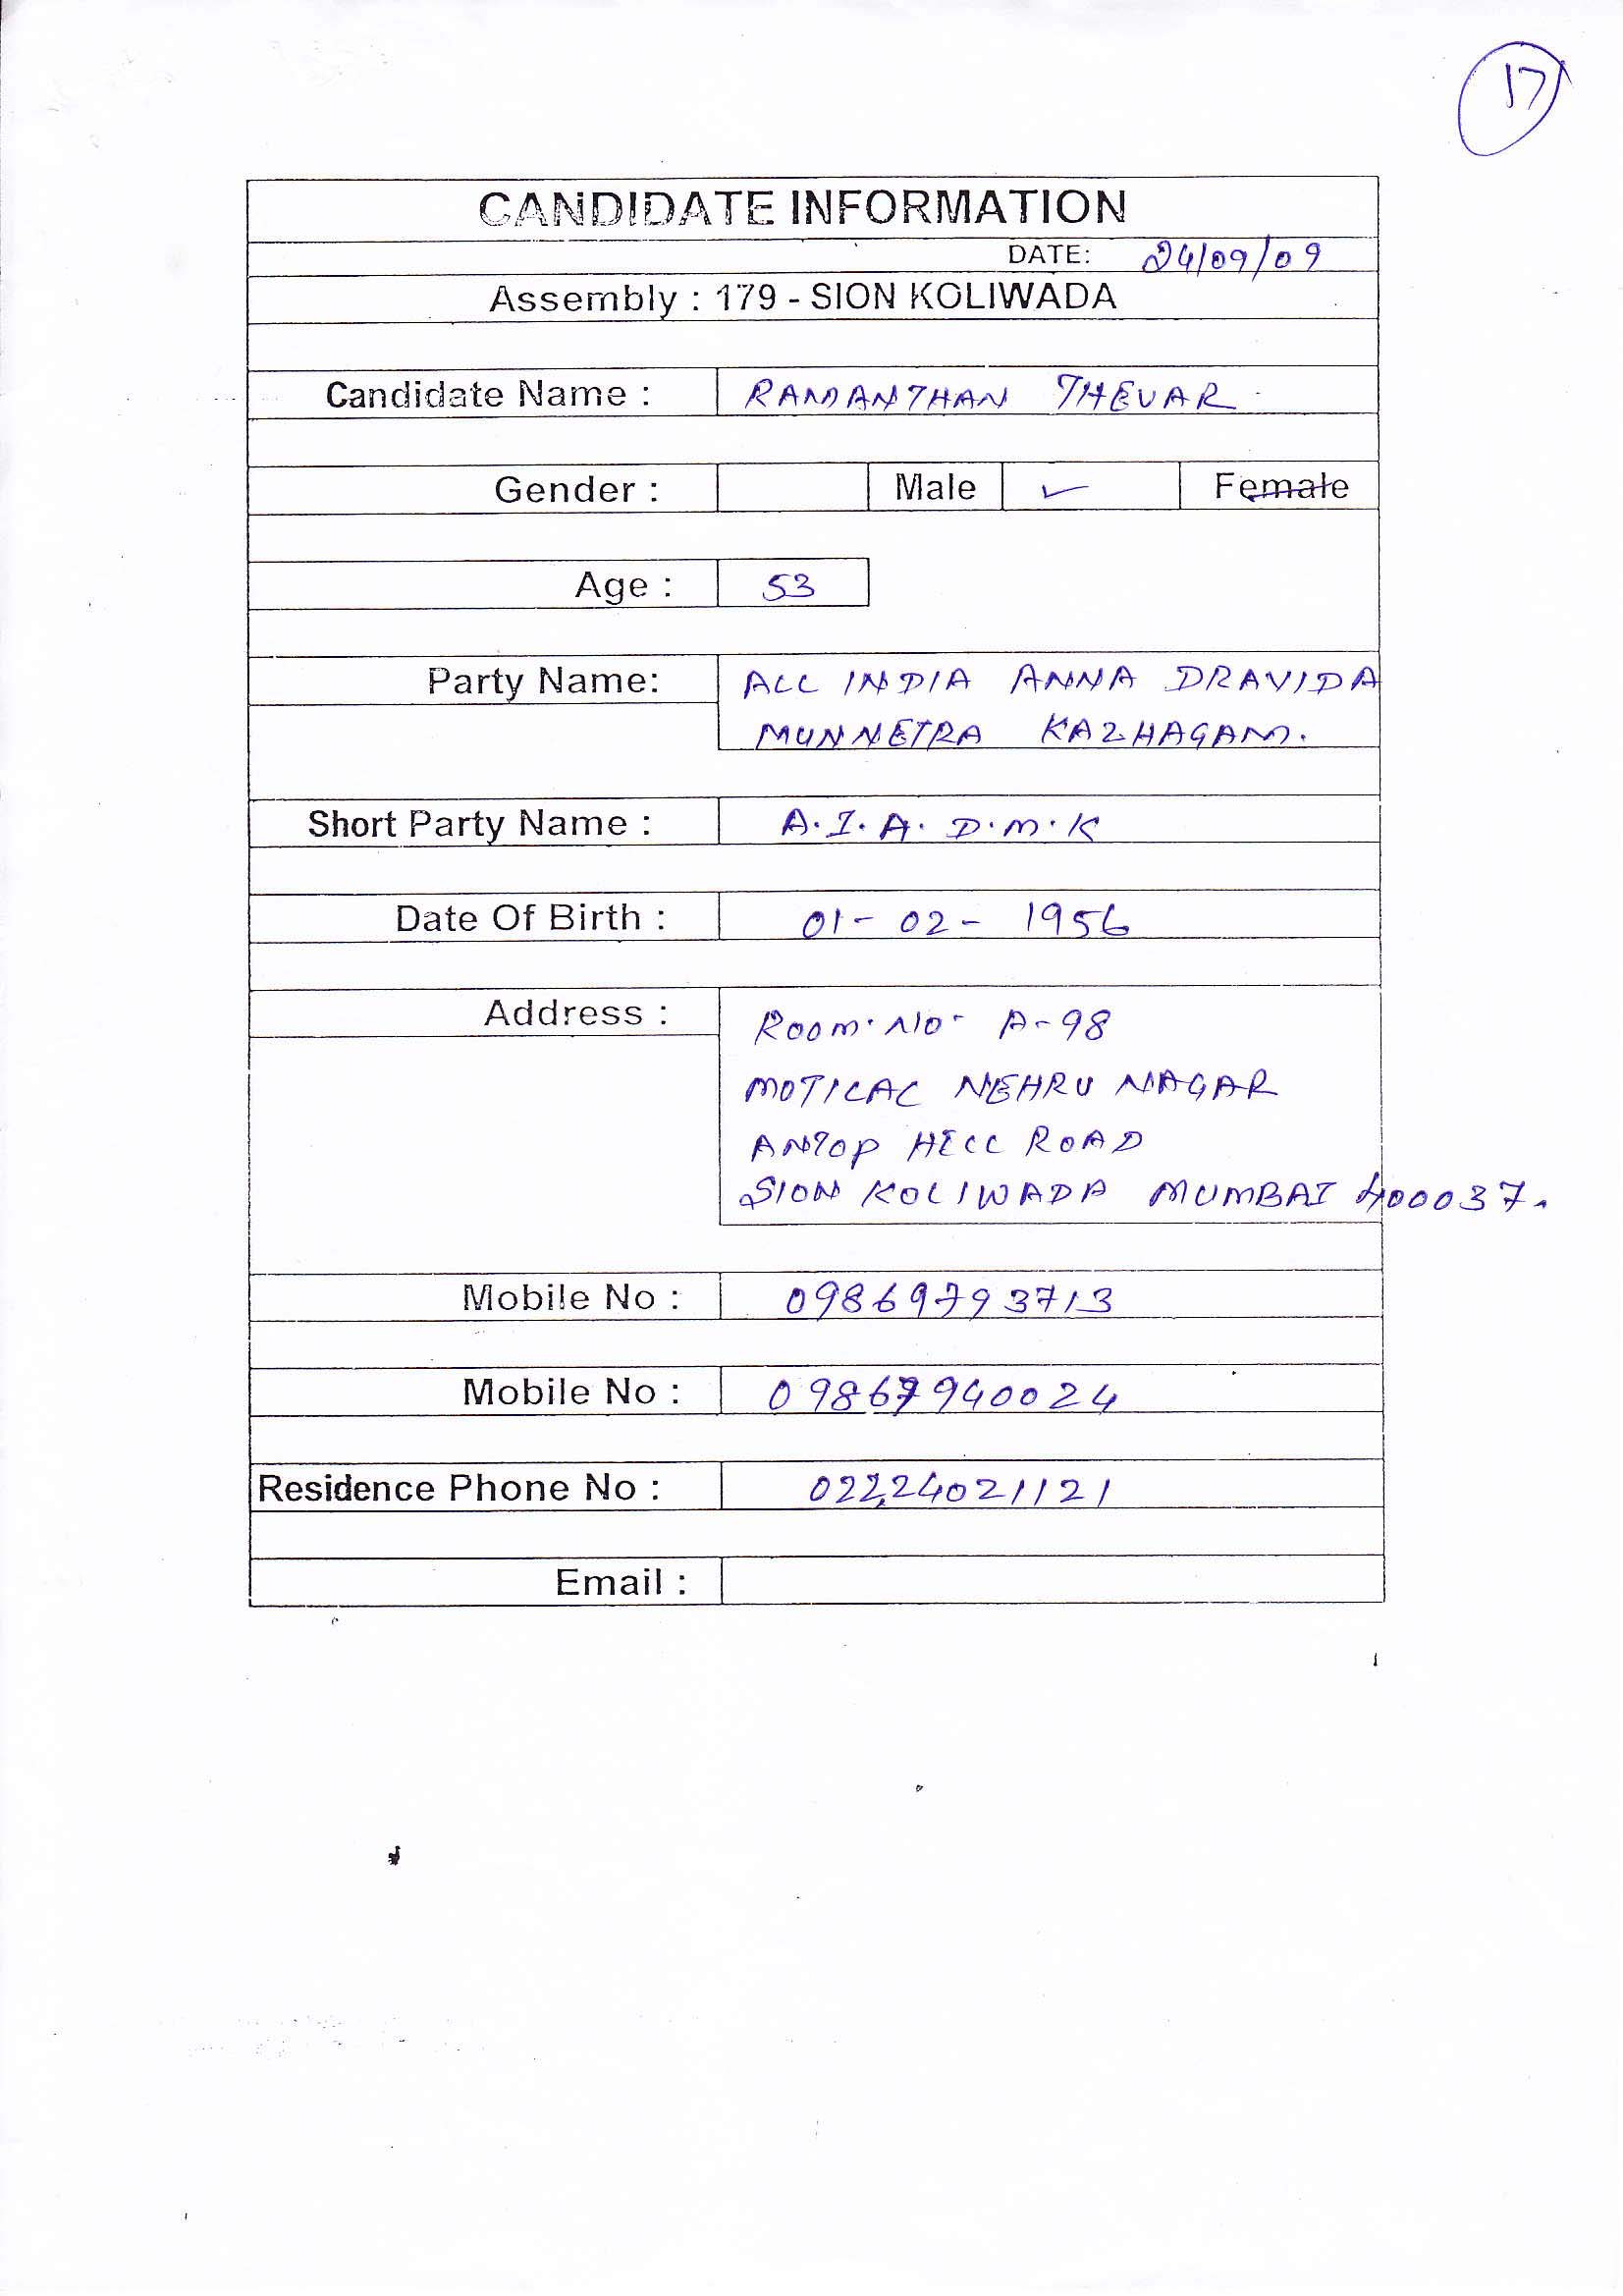 17
CANDIDATE INFORMATION
DATE: 24/09/09
Assembly : 179 - SION KOLIWADA
Candidate Name : RAMANTHAN THEVAR
Gender : Male ✓ Female
Age : 53
Party Name: ALL INDIA ANNA DRAVIDA
MUNNETRA KAZHAGAM.
Short Party Name : A.I.A. D.M.K
Date Of Birth : 01- 02- 1956
Address : ROOM. NO- A-98
MOTILAL NEHRU NAGAR
ANTOP HILL ROAD
SION KOLIWADA MUMBAI 400037.
Mobile No : 09869793713
Mobile No : 09867940024
Residence Phone No : 02224021121
Email :